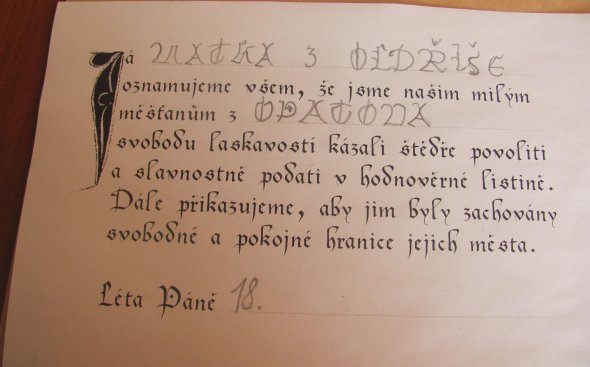 Já MATKA Z OLDŘIŠE
oznamujeme všem, že jsme našim milým
měšťanům z OPATOVA
svobodu laskavostí kázali štědře povoliti
a slavnostně podati v hodnověrné listině.
Dále přikazujeme, aby jim byly zachovány
svobodné a pokojné hranice jejich města.
Léta Páně 18.